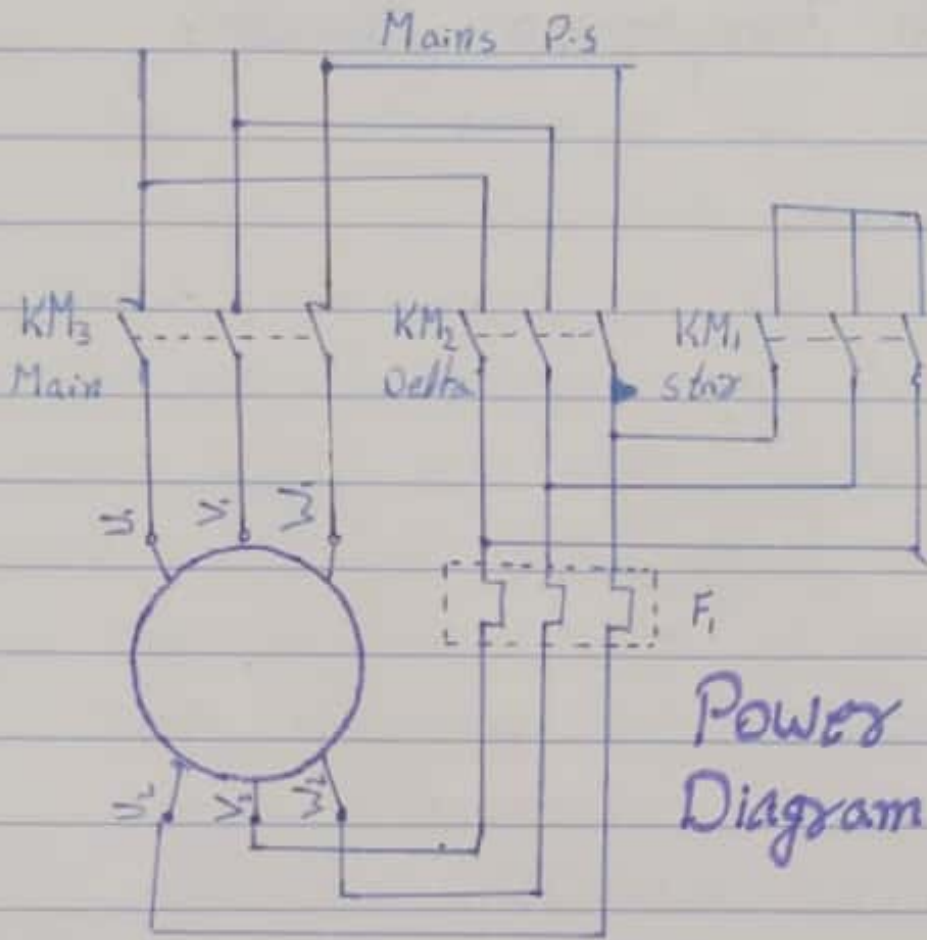 Mains P.s
KM3
Main
KM2
Delta
KM1
star
U1
V1
W1
F1
Power
Diagram
U2
V2
W2